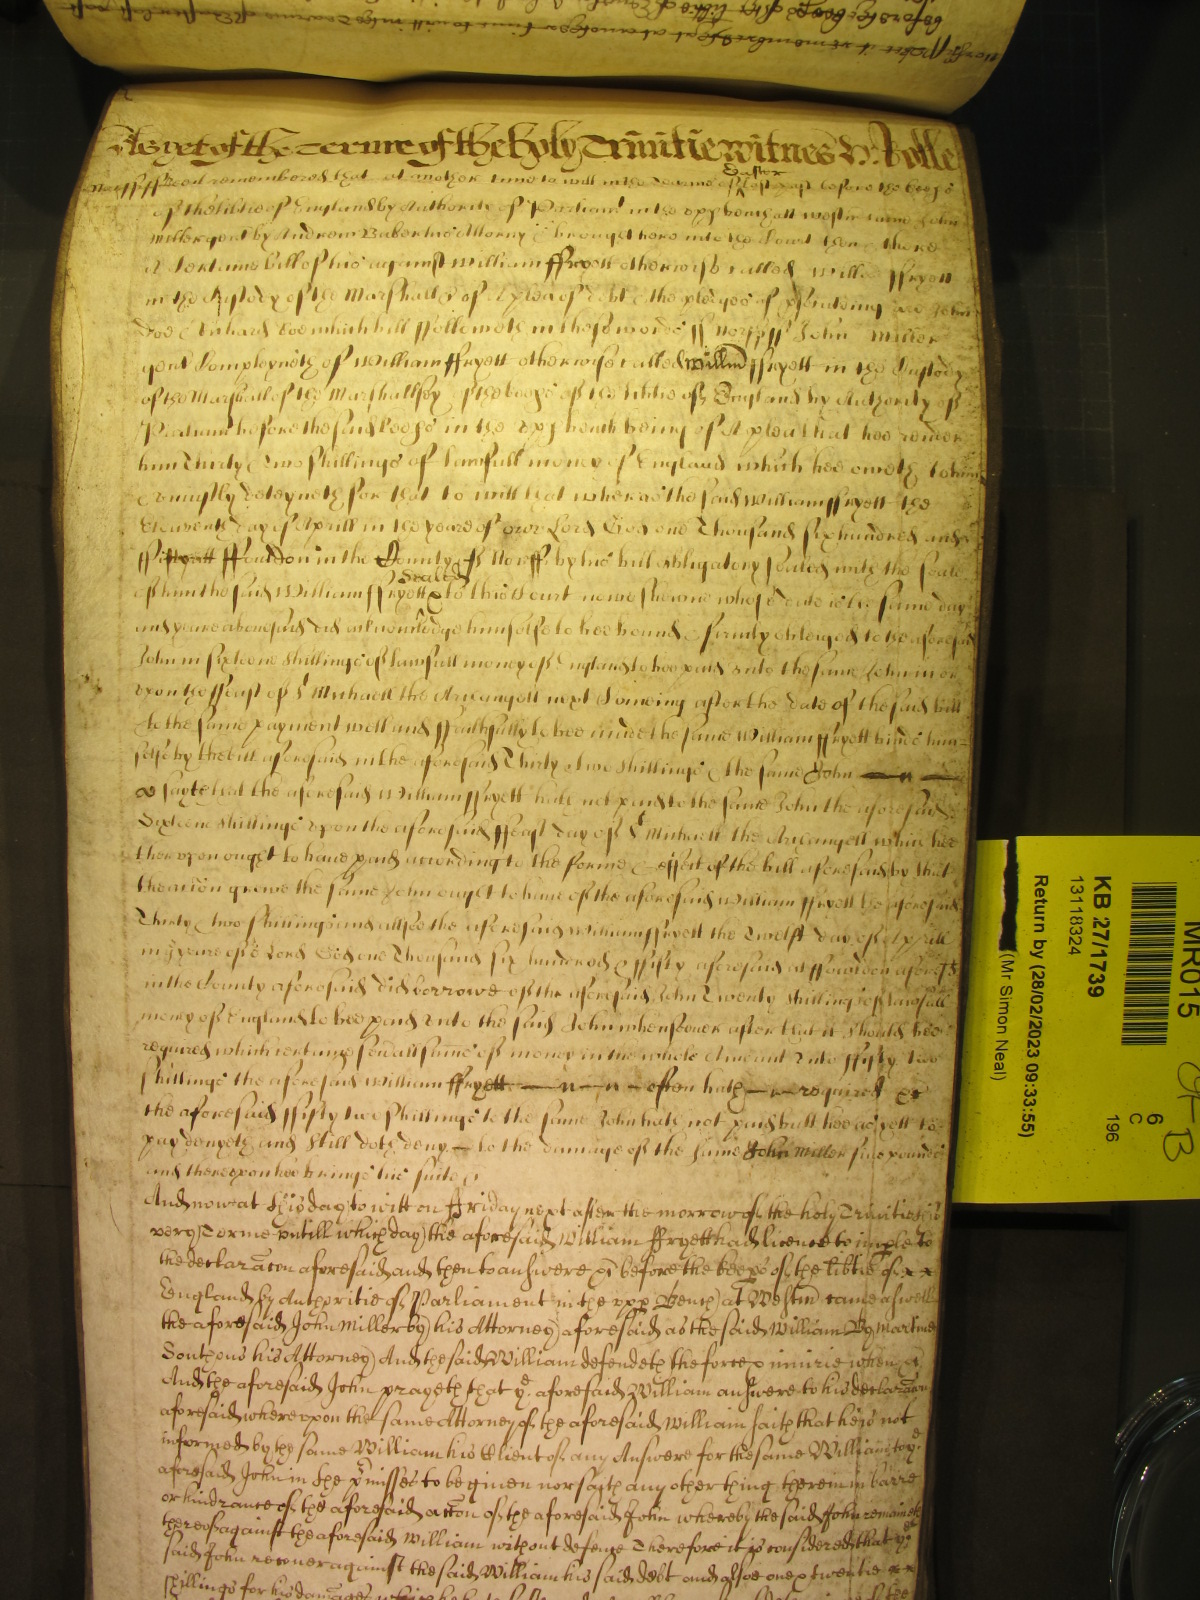 As yet of the Terme of the holy Trinitie witnes H: Rolle
Norff ss Bee it remembred that at another time to will in the Terme of Easter last past before the keeps
of the libtie of England by Authority of Parliamt in the upp bench att Westm came John
Miller gent by Andrew Baker his Attorny & brought here into the Court then & there
A Certaine bill of his against William ffryett otherwise called Willm ffryett
in the Custody of the Marshall &c of A plea of debt & the pledges of prosecuting are John
Doe & Richard Roe which bill ffolloweth in these words ss Norff ss John Miller
gent Complayneth of William ffryett otherwise called Willm ffryett in the Custody
of the Marshall of the Marshallsey of the keeps of the libtie of England by Authority of
Parliamt before the said keeps in the upp bench being of A plea that hee render
him Thirty & two shillings of lawfull money of England which hee oweth to him
& uniustly deteyneth for that to will that whereas the said William ffryett the
Eleaventh day of Aprill in the yeare of ower Lord God one Thousand six hundred and
ffifty att ffouldon in the County of Norff by his bill obligatory sealed with the seale
of him the said William ffryett & to this Court nowe shewne whose date is the same day
and yeare aforesaid did acknowledge himselfe to bee bound & firmly obleiged to the aforesaid
John in sixteene shillings of lawfull money of England to bee paid unto the same John in or
upon the ffeast of St Michaell the Arcangell next Comeing after the date of the said bill
to the same payment well and ffaithfully to bee made the same William ffryett binds him-
selfe by the bill aforesaid in the aforesaid Thirty & two shillings & the same John
sayth that the aforesaid William ffryett hath not paid to the same John the aforesaid
Sixteene shillings upon the aforesaid ffeast day of St Michaell the Arcangell which hee
thereupon ought to have paid according to the forme & effect of the bill aforesaid by that
the action grewe the same John ought to have of the aforesaid William ffryett the aforesaid
Thirty & two shillings and allsoe the aforesaid William ffryett the Twelft day of Aprill
in ye yeare of or Lord God one Thousand six hundred & ffifty aforesaid at ffouldon aforesd
in the County aforesaid did borrowe of the aforesaid John Twenty shillings of lawfull
money of England to bee paid unto the said John whensoever after that it should bee
required which certaine severall sumes of money in the whole Amount unto ffifty two
shillings the aforesaid William ffryett often hath required &c
the aforesaid ffifty two shillings to the same John hath not paid butt hee as yett to
pay denyeth and still doth deny to the damage of the same John Miller five pounds
and thereupon hee brings his suite &c
And now at this day to witt on ffriday next after the morrow of the holy Trinitie this
very Terme untill which day the aforesaid William ffryett had licence to imple to
the declaracon aforesaid and then to answere &c before the keeps of the libtie of
England by Authoritie of Parliament in the upp Bench at Westm came aswell
the aforesaid John Miller by his Attorney aforesaid as the said William By Martine
his Attorney And the said William defendeth the force & iniurie when &c
And the aforesaid John prayeth that ye aforesaid William answere to his declaracon
aforesaid whereupon the same Attorney of the aforesaid William saith that he is not
informed by the same William his Client of any Answere for the same William to ye
aforesaid John in the pmisses to be given nor sayth any other thing therein in barre
or hindrance of the aforesaid accon of the aforesaid John whereby the said John remaineth
thereof against the aforesaid William without defense Therefore it is considered that ye
said John recover against the said William his said debt and alsoe one & twentie
shillings for his damages
MR015
KB 27/1739
13118324
6
C
196
Return by (28/02/2023 09:33:55)
(Mr Simon Neal)